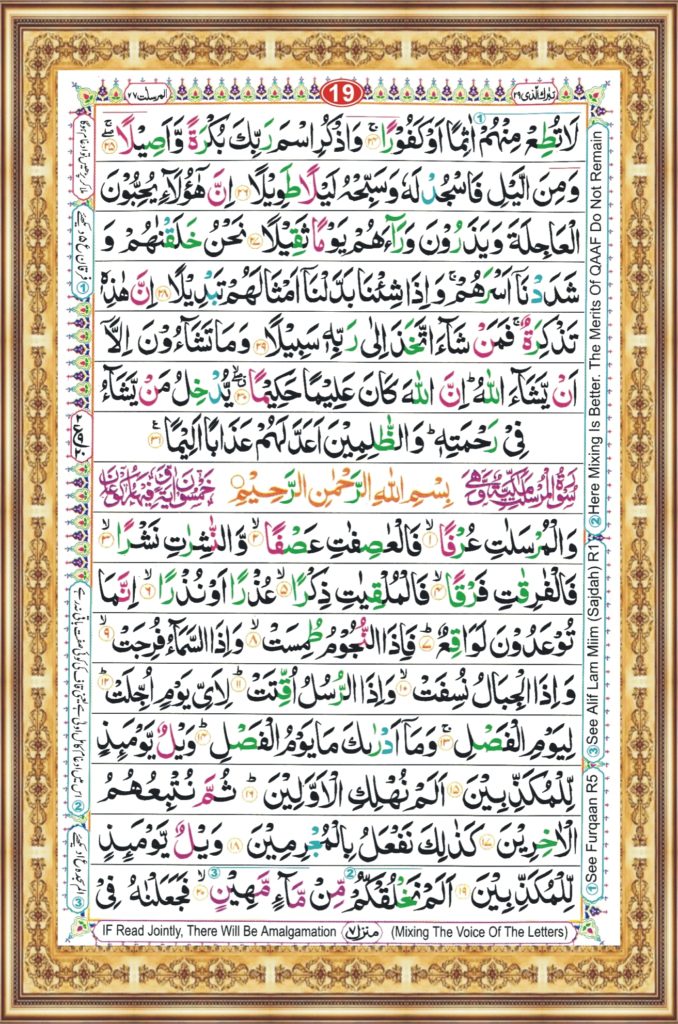 المرسلت ٧٧
19
تبٰرك الذی ٢٩
لَا تُطِعْ مِنْهُمْ اٰثِمًا اَوْ كَفُوْرًا ۚ ٢٤ وَاذْكُرِ اسْمَ رَبِّكَ بُكْرَةً وَّاَصِيْلًا ٢٥
وَمِنَ الَّيْلِ فَاسْجُدْ لَهٗ وَسَبِّحْهُ لَيْلًا طَوِيْلًا ٢٦ اِنَّ هٰٓؤُلَآءِ يُحِبُّوْنَ
الْعَاجِلَةَ وَيَذَرُوْنَ وَرَآءَهُمْ يَوْمًا ثَقِيْلًا ٢٧ نَحْنُ خَلَقْنٰهُمْ وَ
شَدَدْنَآ اَسْرَهُمْ ۚ وَاِذَا شِئْنَا بَدَّلْنَآ اَمْثَالَهُمْ تَبْدِيْلًا ٢٨ اِنَّ هٰذِهٖ
تَذْكِرَةٌ ۚ فَمَنْ شَآءَ اتَّخَذَ اِلٰى رَبِّهٖ سَبِيْلًا ٢٩ وَمَا تَشَآءُوْنَ اِلَّآ
اَنْ يَّشَآءَ اللّٰهُ ؕ اِنَّ اللّٰهَ كَانَ عَلِيْمًا حَكِيْمًا ٣٠ يُّدْخِلُ مَنْ يَّشَآءُ
فِيْ رَحْمَتِهٖ ؕ وَالظّٰلِمِيْنَ اَعَدَّ لَهُمْ عَذَابًا اَلِيْمًا ٣١
بِسْمِ اللّٰهِ الرَّحْمٰنِ الرَّحِيْمِ
وَالْمُرْسَلٰتِ عُرْفًا ١ فَالْعٰصِفٰتِ عَصْفًا ٢ وَّالنّٰشِرٰتِ نَشْرًا ٣
فَالْفٰرِقٰتِ فَرْقًا ٤ فَالْمُلْقِيٰتِ ذِكْرًا ٥ عُذْرًا اَوْ نُذْرًا ٦ اِنَّمَا
تُوْعَدُوْنَ لَوَاقِعٌ ٧ فَاِذَا النُّجُوْمُ طُمِسَتْ ٨ وَاِذَا السَّمَآءُ فُرِجَتْ ٩
وَاِذَا الْجِبَالُ نُسِفَتْ ١٠ وَاِذَا الرُّسُلُ اُقِّتَتْ ١١ لِاَيِّ يَوْمٍ اُجِّلَتْ ١٢
لِيَوْمِ الْفَصْلِ ١٣ وَمَآ اَدْرٰىكَ مَا يَوْمُ الْفَصْلِ ١٤ وَيْلٌ يَّوْمَئِذٍ
لِّلْمُكَذِّبِيْنَ ١٥ اَلَمْ نُهْلِكِ الْاَوَّلِيْنَ ١٦ ثُمَّ نُتْبِعُهُمُ
الْاٰخِرِيْنَ ١٧ كَذٰلِكَ نَفْعَلُ بِالْمُجْرِمِيْنَ ١٨ وَيْلٌ يَّوْمَئِذٍ
لِّلْمُكَذِّبِيْنَ ١٩ اَلَمْ نَخْلُقْكُّمْ مِّنْ مَّآءٍ مَّهِيْنٍ ٢٠ فَجَعَلْنٰهُ فِيْ
IF Read Jointly, There Will Be Amalgamation منزل ٧ (Mixing The Voice Of The Letters)
① See Furqaan R5 ③ See Alif Lam Miim (Sajdah) R1 ② Here Mixing Is Better. The Merits Of QAAF Do Not Remain